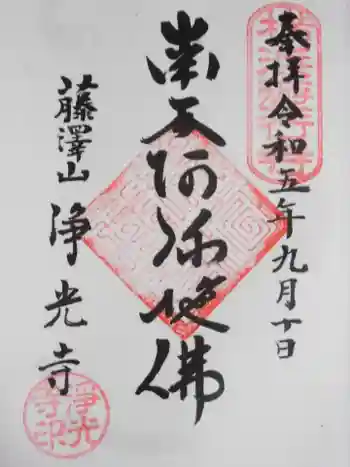 奉拝令和五年九月十日
南无阿弥陀佛
藤澤山
浄光寺
淨光
寺印